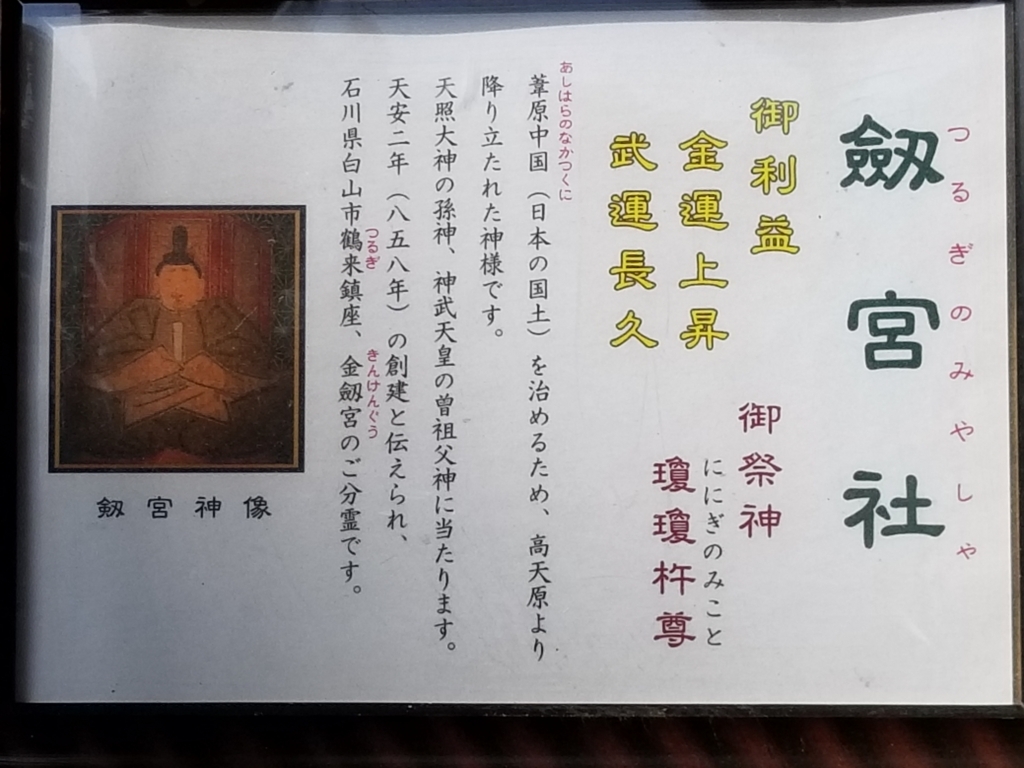 つるぎのみやしゃ
劔宮社
御利益
金運上昇
武運長久
御祭神
ににぎのみこと
瓊瓊杵尊
あしはらのなかつくに
葦原中国（日本の国土）を治めるため、高天原より
降り立たれた神様です。
天照大神の孫神、神武天皇の曽祖父神に当たります。
天安二年（八五八年）の創建と伝えられ、
つるぎ きんけんぐう
石川県白山市鶴来鎮座、金劔宮のご分霊です。
劔宮神像